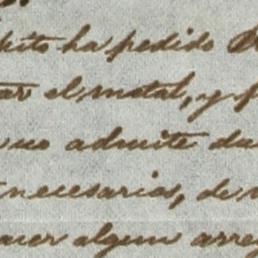 pito ha pedido
ar el metal, y p
no admite du
necesarios, de
acer algun arre